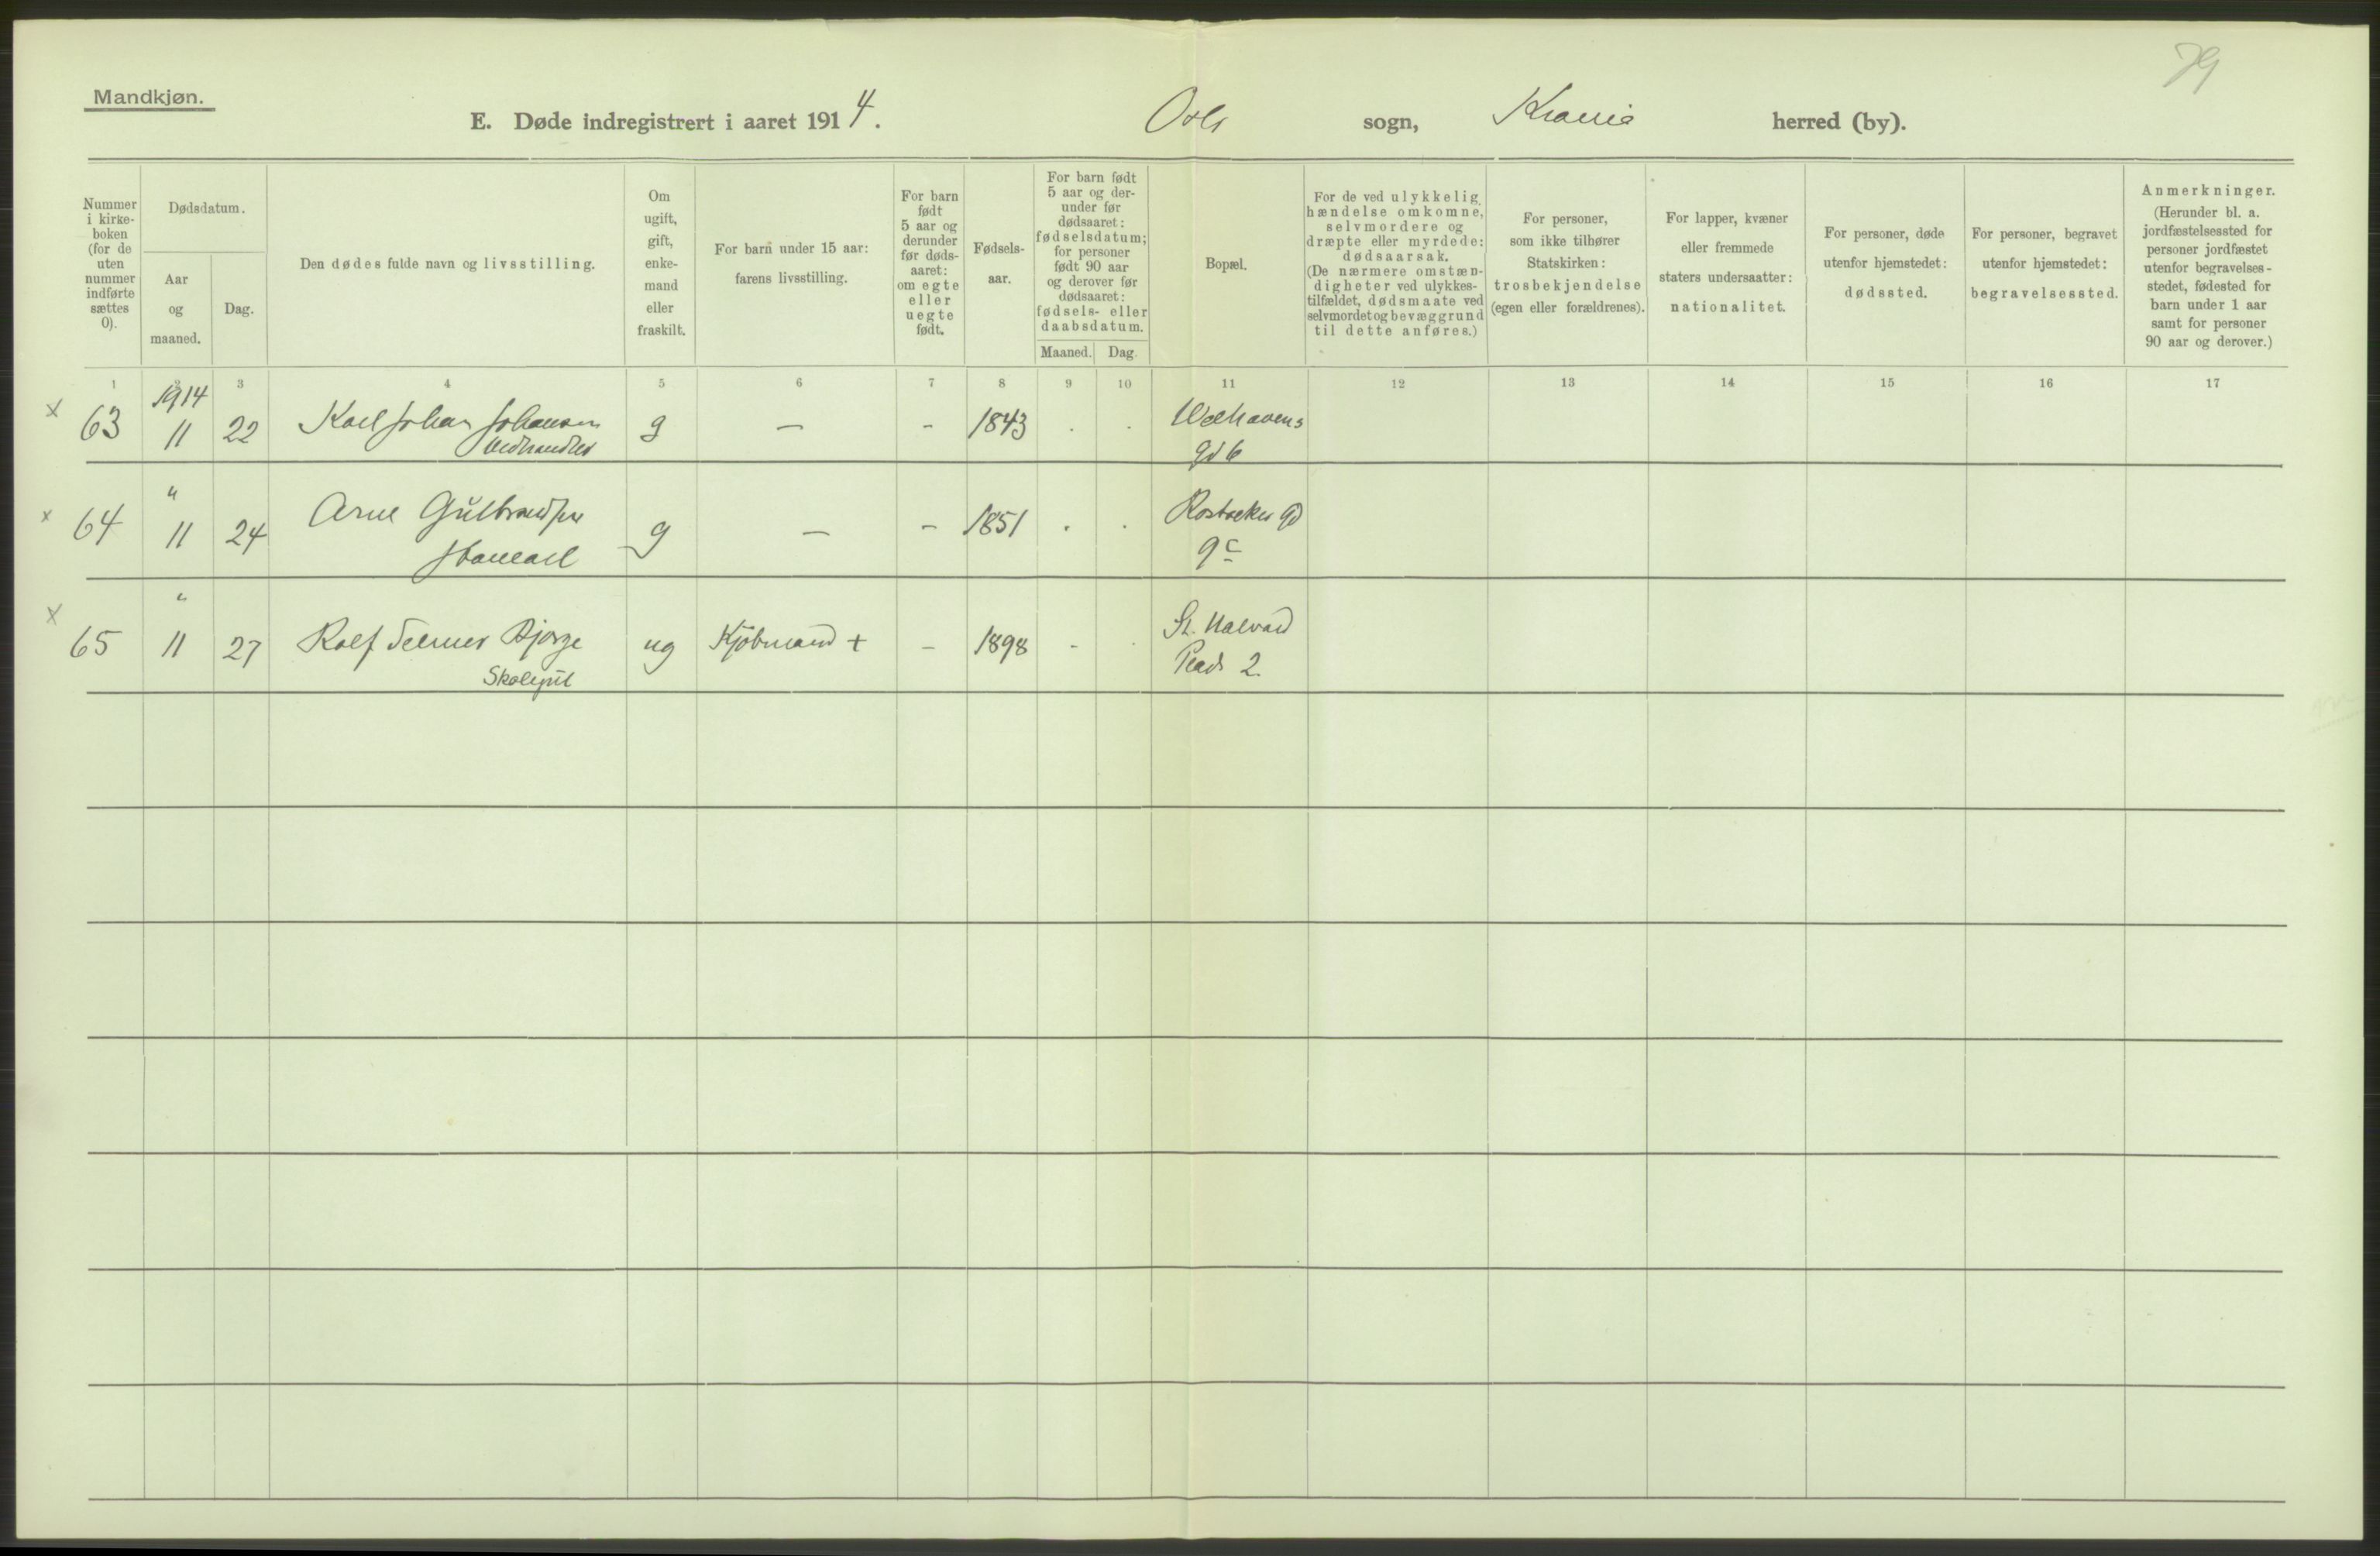 79
Mandkjøn.
E. Døde indregistrert i aaret 1914. Oslo sogn, Krania herred (by).
Nummer i kirke- boken (for de uten nummer indførte sættes 0).
Dødsdatum.
Aar og maaned.
Dag.
Den dødes fulde navn og livsstilling.
Om ugift, gift, enke- mand eller fraskilt.
For barn under 15 aar: farens livsstilling.
For barn født 5 aar og derunder før døds- aaret: om egte eller uegte født.
Fødsels- aar.
For barn født 5 aar og der- under før dødsaaret: fødselsdatum; for personer født 90 aar og derover før dødsaaret: fødsels- eller daabsdatum.
Maaned. Dag.
Bopæl.
For de ved ulykkelig hændelse omkomne, selvmordere og dræpte eller myrdede: dødsaarsak. (De nærmere omstæn- digheter ved ulykkes- tilfældet, dødsmaate ved selvmordet og bevæggrund til dette anføres.)
For personer, som ikke tilhører Statskirken: trosbekjendelse (egen eller forældrenes).
For lapper, kvæner eller fremmede staters undersaatter: nationalitet.
For personer, døde utenfor hjemstedet: dødssted.
For personer, begravet utenfor hjemstedet: begravelsessted.
Anmerkninger. (Herunder bl. a. jordfæstelsessted for personer jordfæstet utenfor begravelses- stedet, fødested for barn under 1 aar samt for personer 90 aar og derover.)
1 2 3 4 5 6 7 8 9 10 11 12 13 14 15 16 17
1914
x 63 11 22 Karl Johan Johansen g — - 1843 . . Welhavens
Vedhandler gd 6
"
x 64 11 24 Arne Gulbrandsen g — - 1851 . . Rostocker gd
9c
"
x 65 11 27 Rolf Telmer Bjorge ug Kjøbmand + - 1898 - . St. Halvard
Skolegut Plads 2.